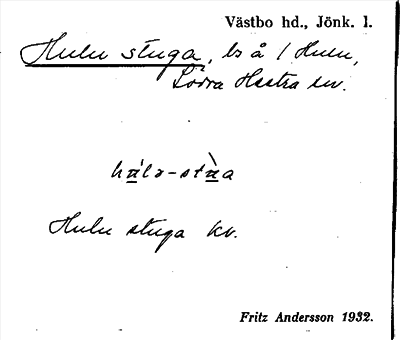 Västbo hd., Jönk. l.
Hulu stuga, ls å 1 Hulu,
Södra Hestra sn.
hú̲lə-stù̲a
Hulu stuga kv.
Fritz Andersson 1932.